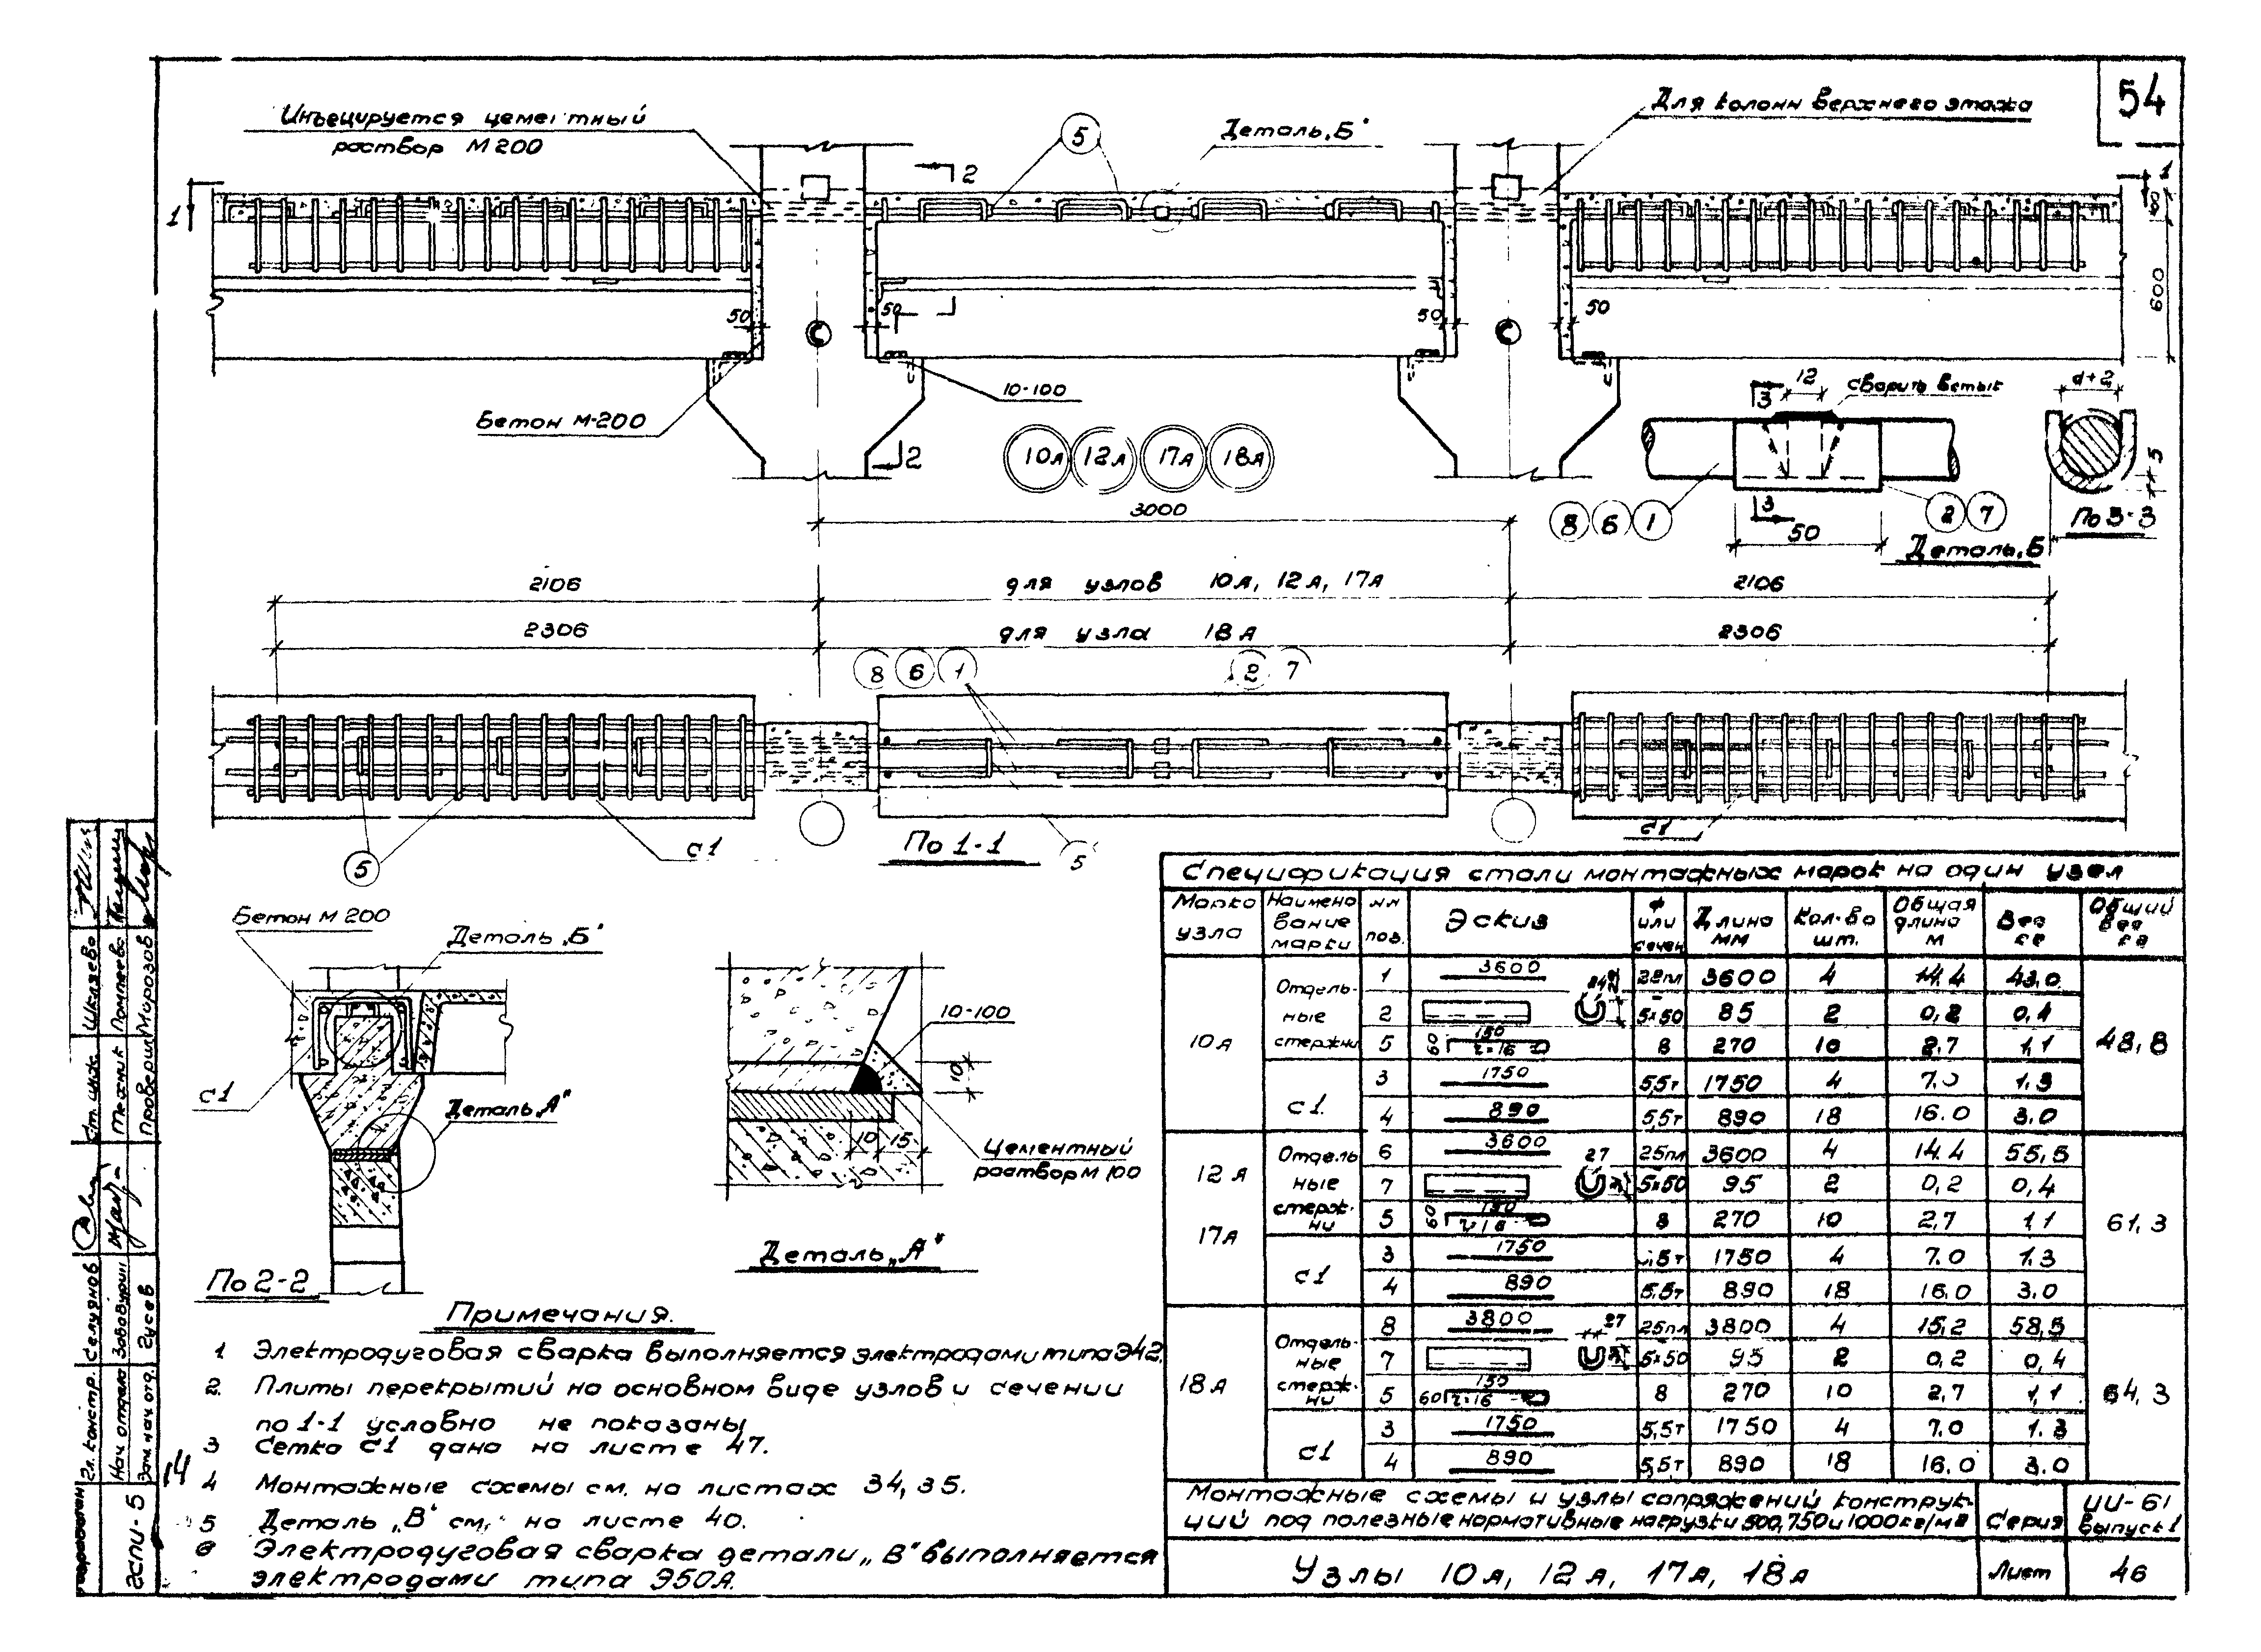 54
Инъецируется цементный
раствор М200
5
Деталь „Б"
Для колонн верхнего этажа
2
1
1
60
600
50
50
50
50
10-100
Бетон М-200
2
10А 12А 17А 18А
3
12
сварить встык
d+2
5
3
8 6 1
2 7
50
По 3-3
Деталь „Б
3000
2106
для узлов 10А, 12А, 17А
2106
2306
для узла 18А
2306
8 6 1
2 7
5
с1
По 1-1
5
с1
Бетон М200
Деталь „Б"
с1
Деталь „А"
По 2-2
10-100
10
10 15
Цементный
раствор М100
Деталь „А"
Примечания.
1 Электродуговая сварка выполняется электродами типа Э42.
2. Плиты перекрытий на основном виде узлов и сечении
по 1-1 условно не показаны
3 Сетка с1 дана на листе 47.
4 Монтажные схемы см. на листах 34, 35.
5 Деталь „В" см. на листе 40.
6 Электродуговая сварка детали „В" выполняется
электродами типа Э50А.
Спецификация стали монтажных марок на один узел
Марка узла Наименование марки NN поз. Эскиз Ф или сечен. Длина мм Кол-во шт. Общая длина м Вес кг Общий вес кг
10А Отдельные стержни 1 3600 22пл 3600 4 14.4 43,0 48,8
2 5×50 85 2 0,2 0,4
5 60 150 r=16 8 270 10 2,7 1,1
с1. 3 1750 5,5т 1750 4 7.0 1.3
4 890 5,5т 890 18 16.0 3.0
12А 17А Отдельные стержни 6 3600 25пл 3600 4 14.4 55,5 61,3
7 27 5×50 95 2 0,2 0,4
5 60 150 r=16 8 270 10 2,7 1,1
с1 3 1750 5,5т 1750 4 7.0 1.3
4 890 5,5т 890 18 16.0 3.0
18А Отдельные стержни 8 3800 25пл 3800 4 15,2 58,5 64,3
7 27 5×50 95 2 0,2 0,4
5 60 150 r=16 8 270 10 2,7 1,1
с1 3 1750 5,5т 1750 4 7.0 1.3
4 890 5,5т 890 18 16.0 3.0
Монтажные схемы и узлы сопряжений конструк-
ций под полезные нормативные нагрузки 500, 750 и 1000кг/м2
Серия
ИИ-61
Выпуск 1
Узлы 10А, 12А, 17А, 18А
Лист
46
Ст. инж. Шкляева
Техник
Проверил Морозов
Гл. констр. Селуянов
Нач. отдела
Зам. нач. отд. Гусев
ГСПИ-5
14